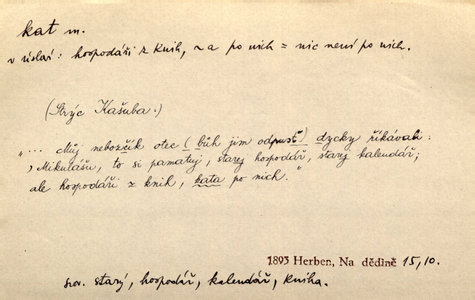 kat m.
v úsloví: hospodáři z knih, ~a po nich = nic není po nich.
(Strýc Kašuba.)
"... Můj nebožčík otec (bůh jim odpusť) dycky říkávali:
,Mikulášu, to si pamatuj, starej hospodář, starej kalendář;
ale hospodáři z knih, kata po nich."
1893 Herben, Na dědině 15,10.
srv. starý, hospodář, kalendář, kniha.